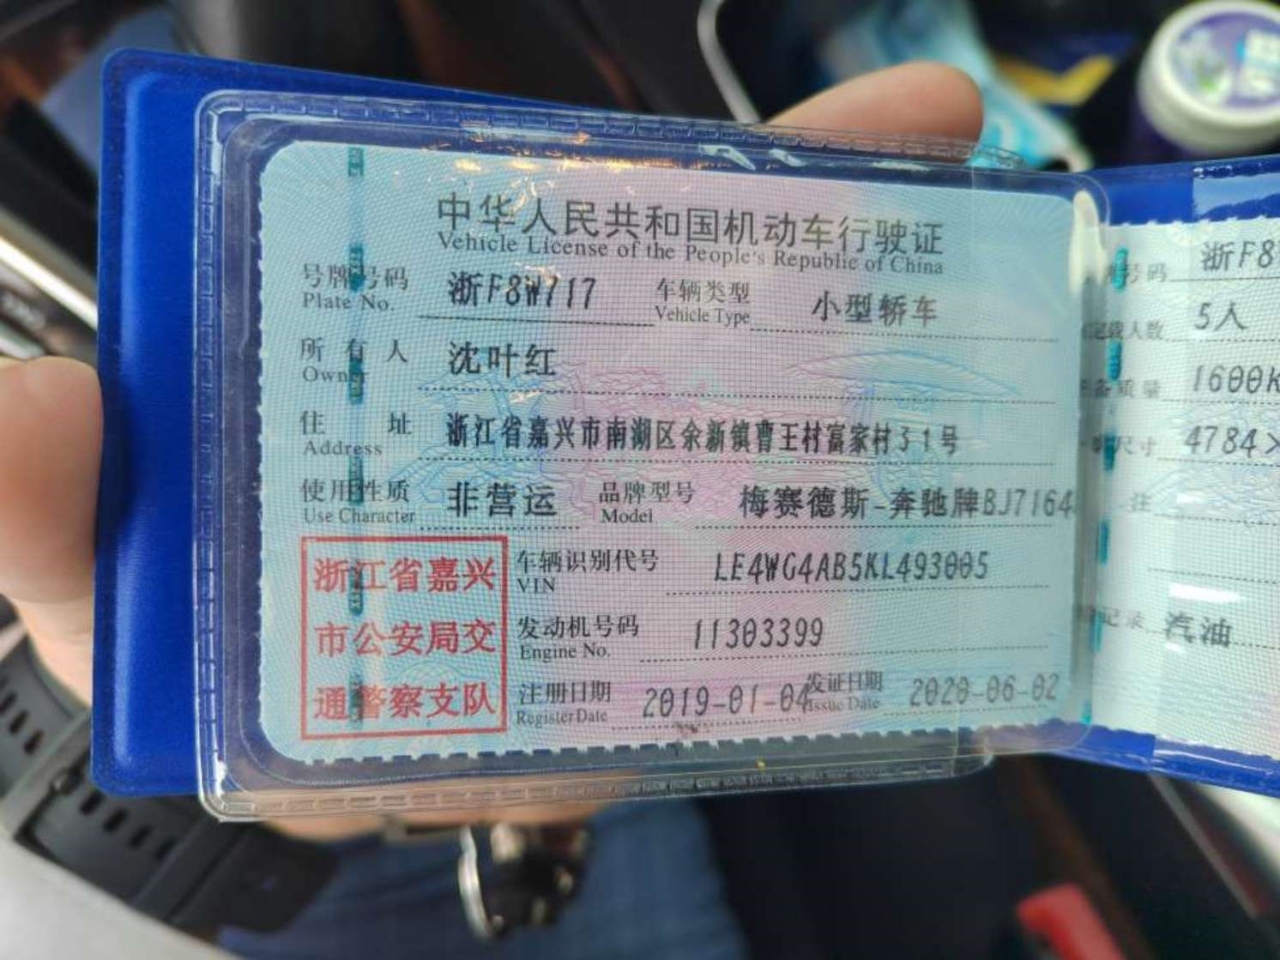 中华人民共和国机动车行驶证
Vehicle License of the People's Republic of China
号牌号码 浙F8W717 车辆类型 小型轿车
Plate No. Vehicle Type
所有人 沈叶红
Owner
住址 浙江省嘉兴市南湖区余新镇曹王村富家村31号
Address
使用性质 非营运 品牌型号 梅赛德斯-奔驰牌BJ7164
Use Character Model
浙江省嘉兴
市公安局交
通警察支队
车辆识别代号 LE4WG4AB5KL493005
VIN
发动机号码 11303399
Engine No.
注册日期 2019-01-04 发证日期 2020-06-02
Register Date Issue Date
号码 浙F8
载人数 5人
质量 1600K
尺寸 4784×
注
记录 汽油